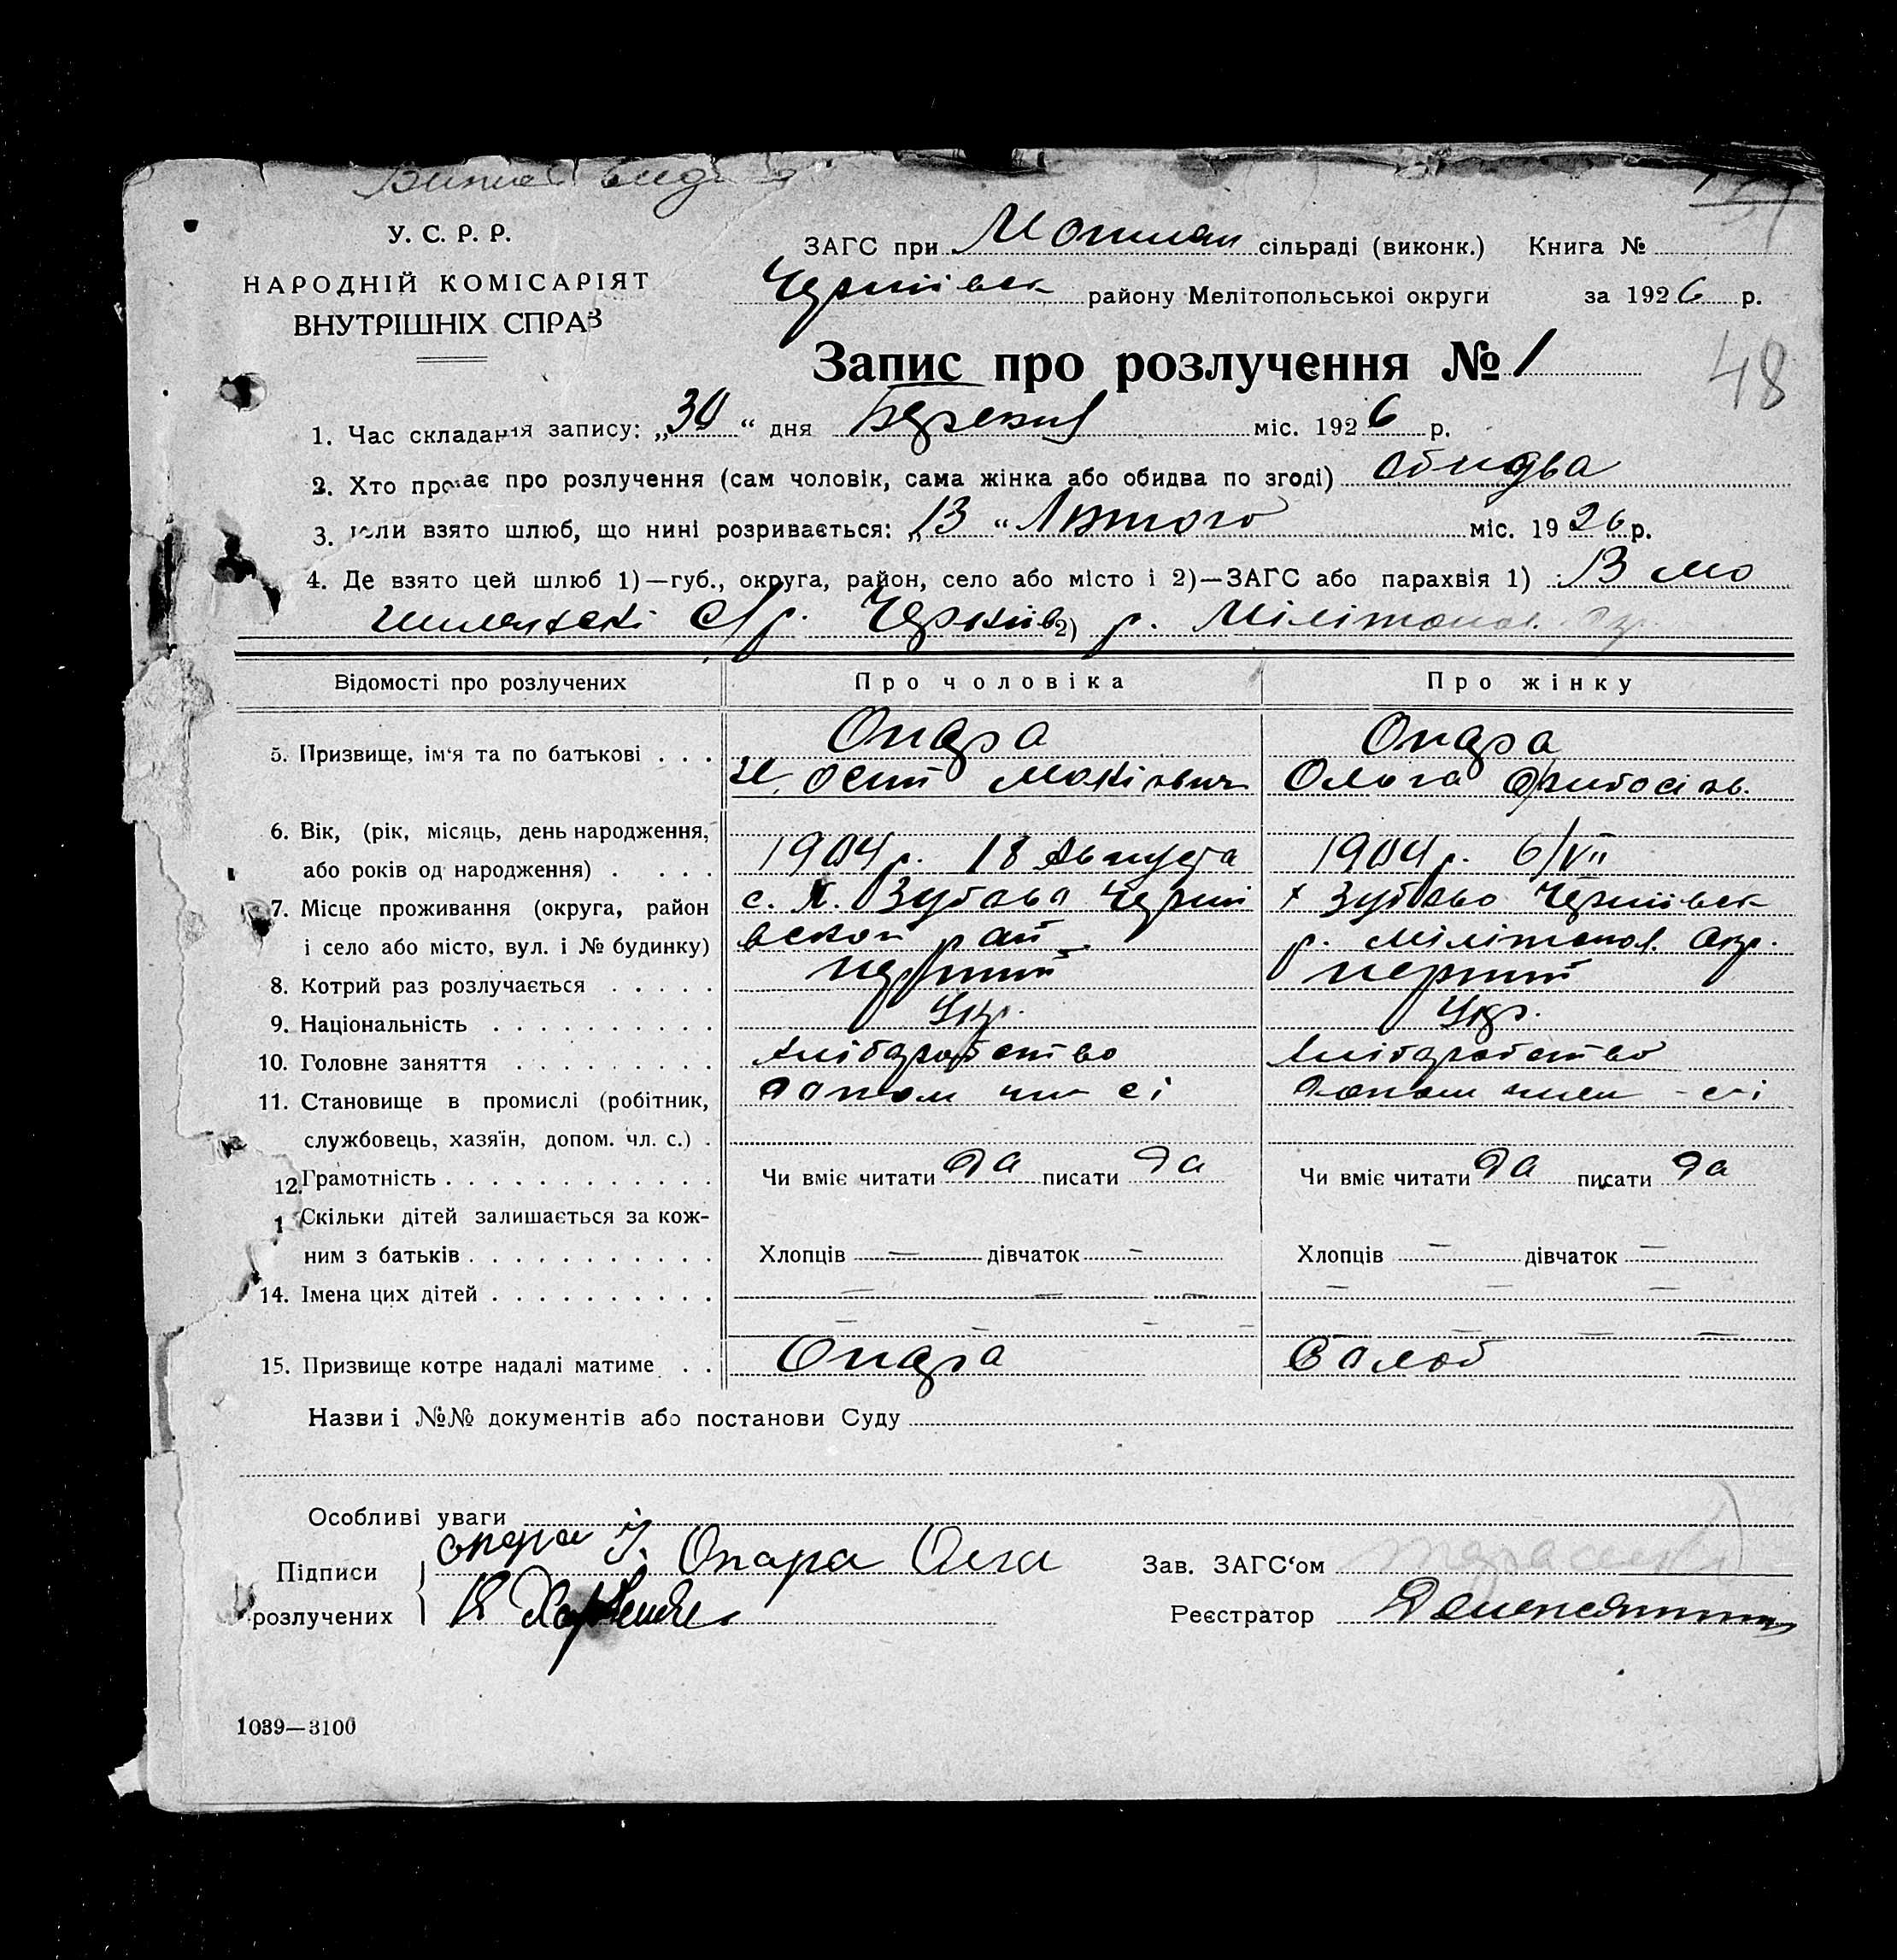 У. С. Р. Р.
НАРОДНІЙ КОМІСАРІЯТ
ВНУТРІШНІХ СПРАВ
ЗАГС при сільраді (виконк.) Книга №
Чернівск району Мелітопольської округи за 1926 р.
Запис про розлучення № 1
48
1. Час складання запису: „30“ дня Березня міс. 1926 р.
2. Хто прохає про розлучення (сам чоловік, сама жінка або обидва по згоді) обидва
3. Коли взято шлюб, що нині розривається: „13“ Лютого міс. 1926 р.
4. Де взято цей шлюб 1)—губ., округа, район, село або місто і 2)—ЗАГС або парахвія 1) В мо
с/р. Чернів 2) р. Мілітопол. окр.
Відомості про розлучених Про чоловіка Про жінку
5. Призвище, ім'я та по батькові . . . Опара Опара
Осип Мокієвич Ольга
6. Вік, (рік, місяць, день народження,
або років од народження) . . . . 1904 р. 18 Августа 1904 р. 6/VII
7. Місце проживання (округа, район с. Зубово Черни х Зубово Чернівск
і село або місто, вул. і № будинку) вской рай. р. Мілітопол. Окр.
8. Котрий раз розлучається . . . . . перший перший
9. Національність . . . . . . . . . . Укр. Укр.
10. Головне заняття . . . . . . . . . хліборобство хліборобство
11. Становище в промислі (робітник, допом чл сі допом член с-і
службовець, хазяїн, допом. чл. с.) .
12. Грамотність . . . . . . . . . . . . Чи вміє читати да писати да Чи вміє читати да писати да
1 Скільки дітей залишається за кож-
ним з батьків . . . . . . . . . . . Хлопців — дівчаток — Хлопців — дівчаток —
14. Імена цих дітей . . . . . . . . . . — — — — — —
— — — — — — — —
15. Призвище котре надалі матиме . . Опара Салоб
Назви і №№ документів або постанови Суду
Особливі уваги
Підписи опара У. Опара Олга Зав. ЗАГС'ом
розлучених Реєстратор
1039—3100